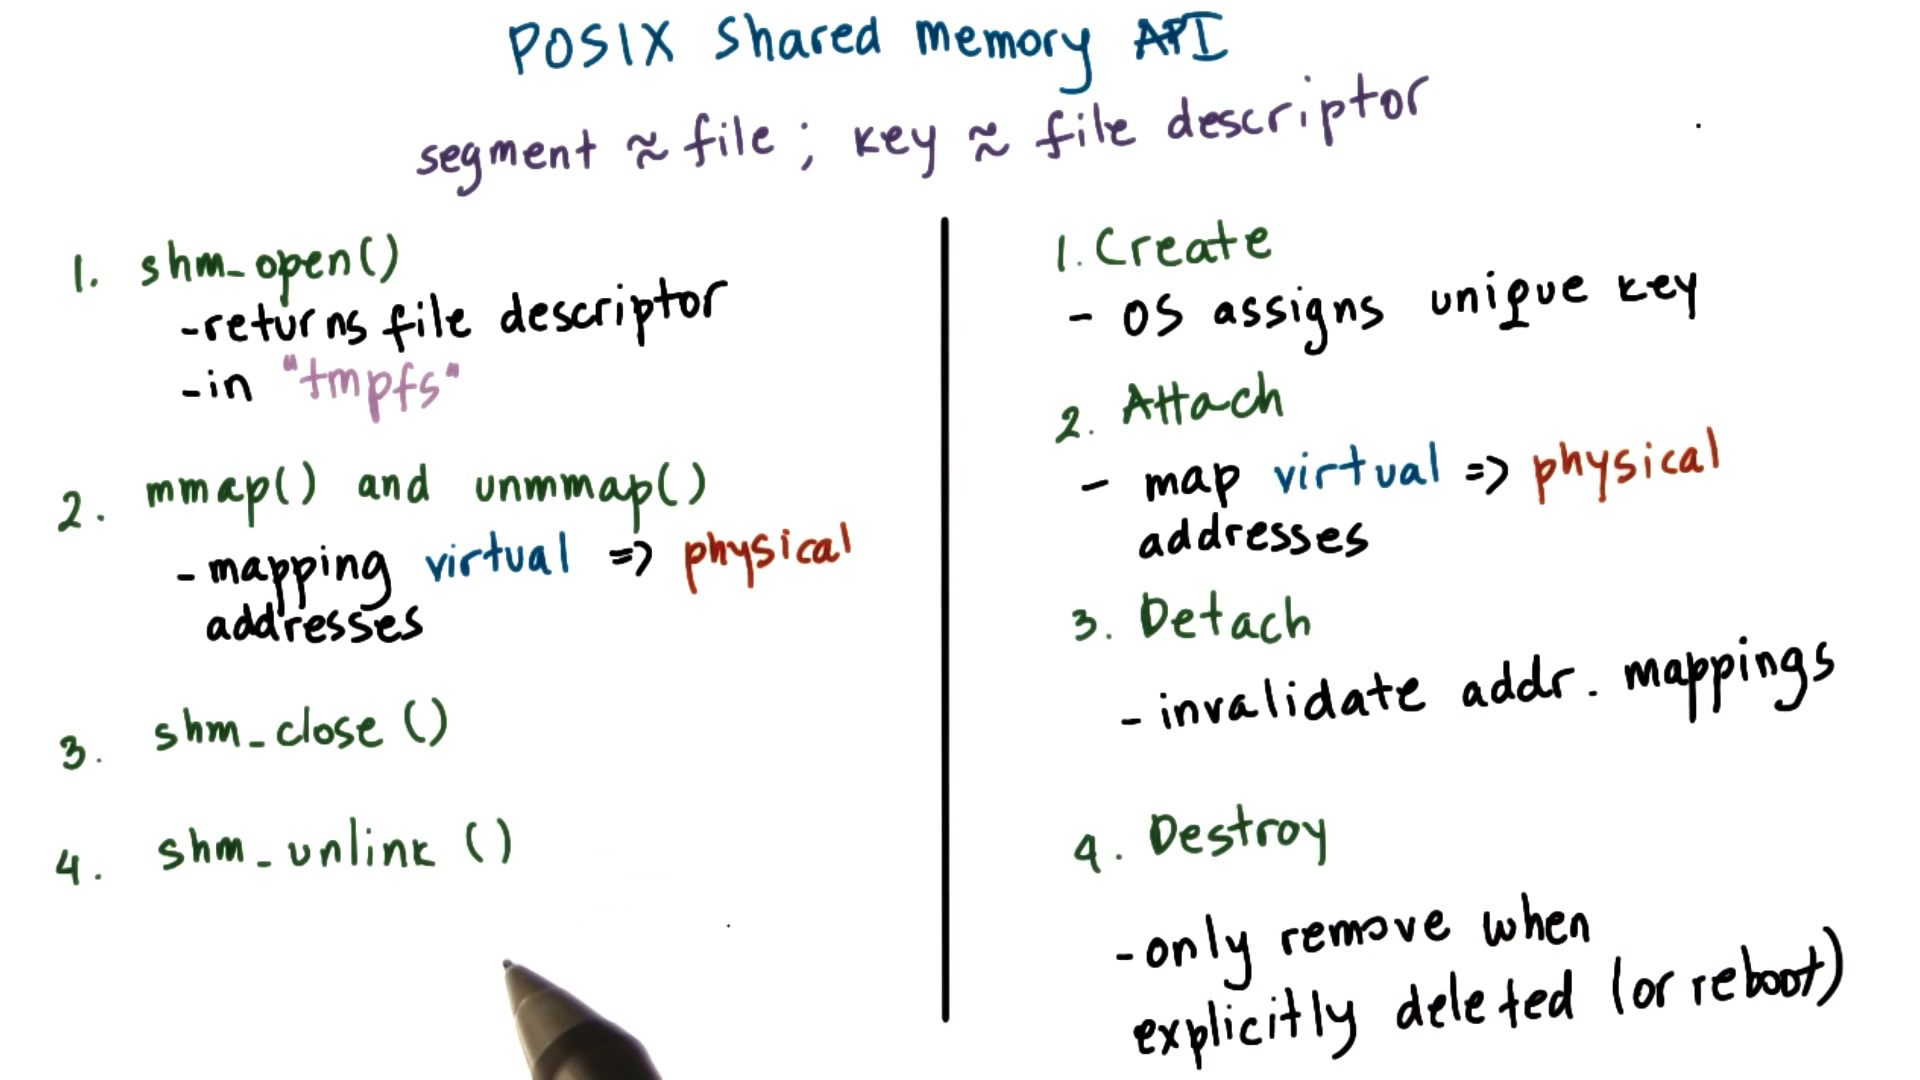 POSIX Shared Memory API
segment ≈ file ; key ≈ file descriptor
1. shm_open()
-returns file descriptor
-in "tmpfs"
2. mmap() and unmmap()
-mapping virtual => physical
addresses
3. shm_close ()
4. shm_unlink ()
1. Create
- OS assigns unique key
2. Attach
- map virtual => physical
addresses
3. Detach
- invalidate addr. mappings
4. Destroy
-only remove when
explicitly deleted (or reboot)